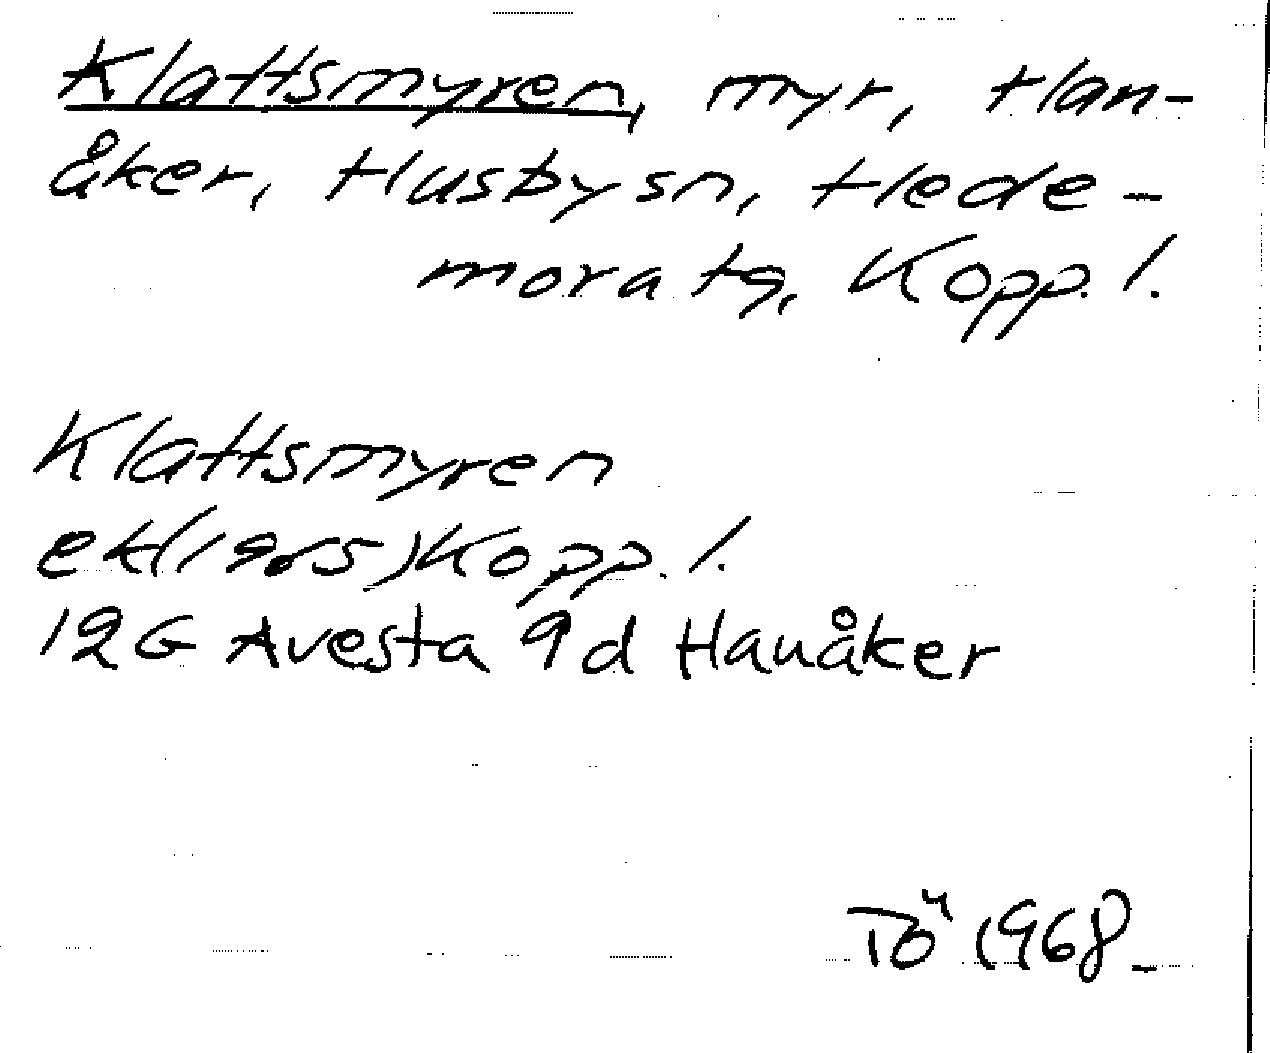 Klattsmyren, myr, Han-
åker, Husby sn, Hede-
mora tg, Kopp. l.
Klattsmyren
ek(1965) Kopp. l.
12G Avesta 9d Hanåker
TÖ 1968